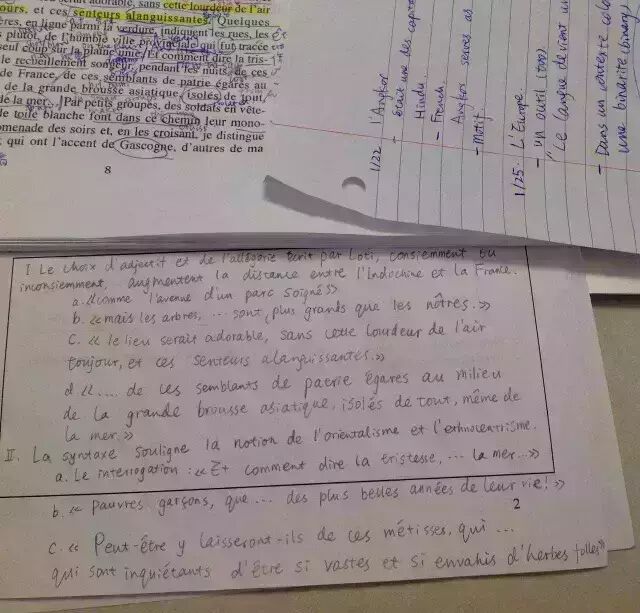 serait adorable, sans cette lourdeur de l'air
ours, et ces senteurs alanguissantes. Quelques
ères, en ligne parmi la verdure, indiquent les rues, les
plutôt, de l'humble ville provinciale qui fut tracée
seul coup sur la plaine unie. Et comment dire la tris-
le recueillement songeur, pendant les nuits, de ces
de France, de ces semblants de patrie égarés au
de la grande brousse asiatique, isolés de tout,
de la mer... Par petits groupes, des soldats en vête-
de toile blanche font dans ce chemin leur mono-
omenade des soirs et, en les croisant, je distingue
qui ont l'accent de Gascogne, d'autres de ma
8
1/22 l'Angkor
- était une des
Hindu.
- French.
Angkor serves as
- Motif.
1/25. L'Europe
- un outil (tool)
"Le langue devient un
- Dans un contexte colo
une binarité (binary)
I Le choix d'adjectif et de l'allégorie écrit par Loti, consiemment ou
inconsiemment, augmentent la distance entre l'Indochine et la France.
a. «comme l'avenue d'un parc soigné»
b. «mais les arbres, ... sont, plus grands que les nôtres.»
c. « le lieu serait adorable, sans cette lourdeur de l'air
toujour, et ces senteurs alanguissantes.»
d «.... de ces semblants de patrie égarés au milieu
de la grande brousse asiatique, isolés de tout, même de
la mer.»
II. La syntaxe souligne la notion de l'orientalisme et l'ethnocentrisme.
a. Le interrogation : «Et comment dire la tristesse, ... la mer...»
b. « pauvres garçons, que ... des plus belles années de leur vie! »
2
c. « Peut-être y laisseront-ils de ces métisses, qui ...
qui sont inquiétants d'être si vastes et si envahis d'herbes folles»